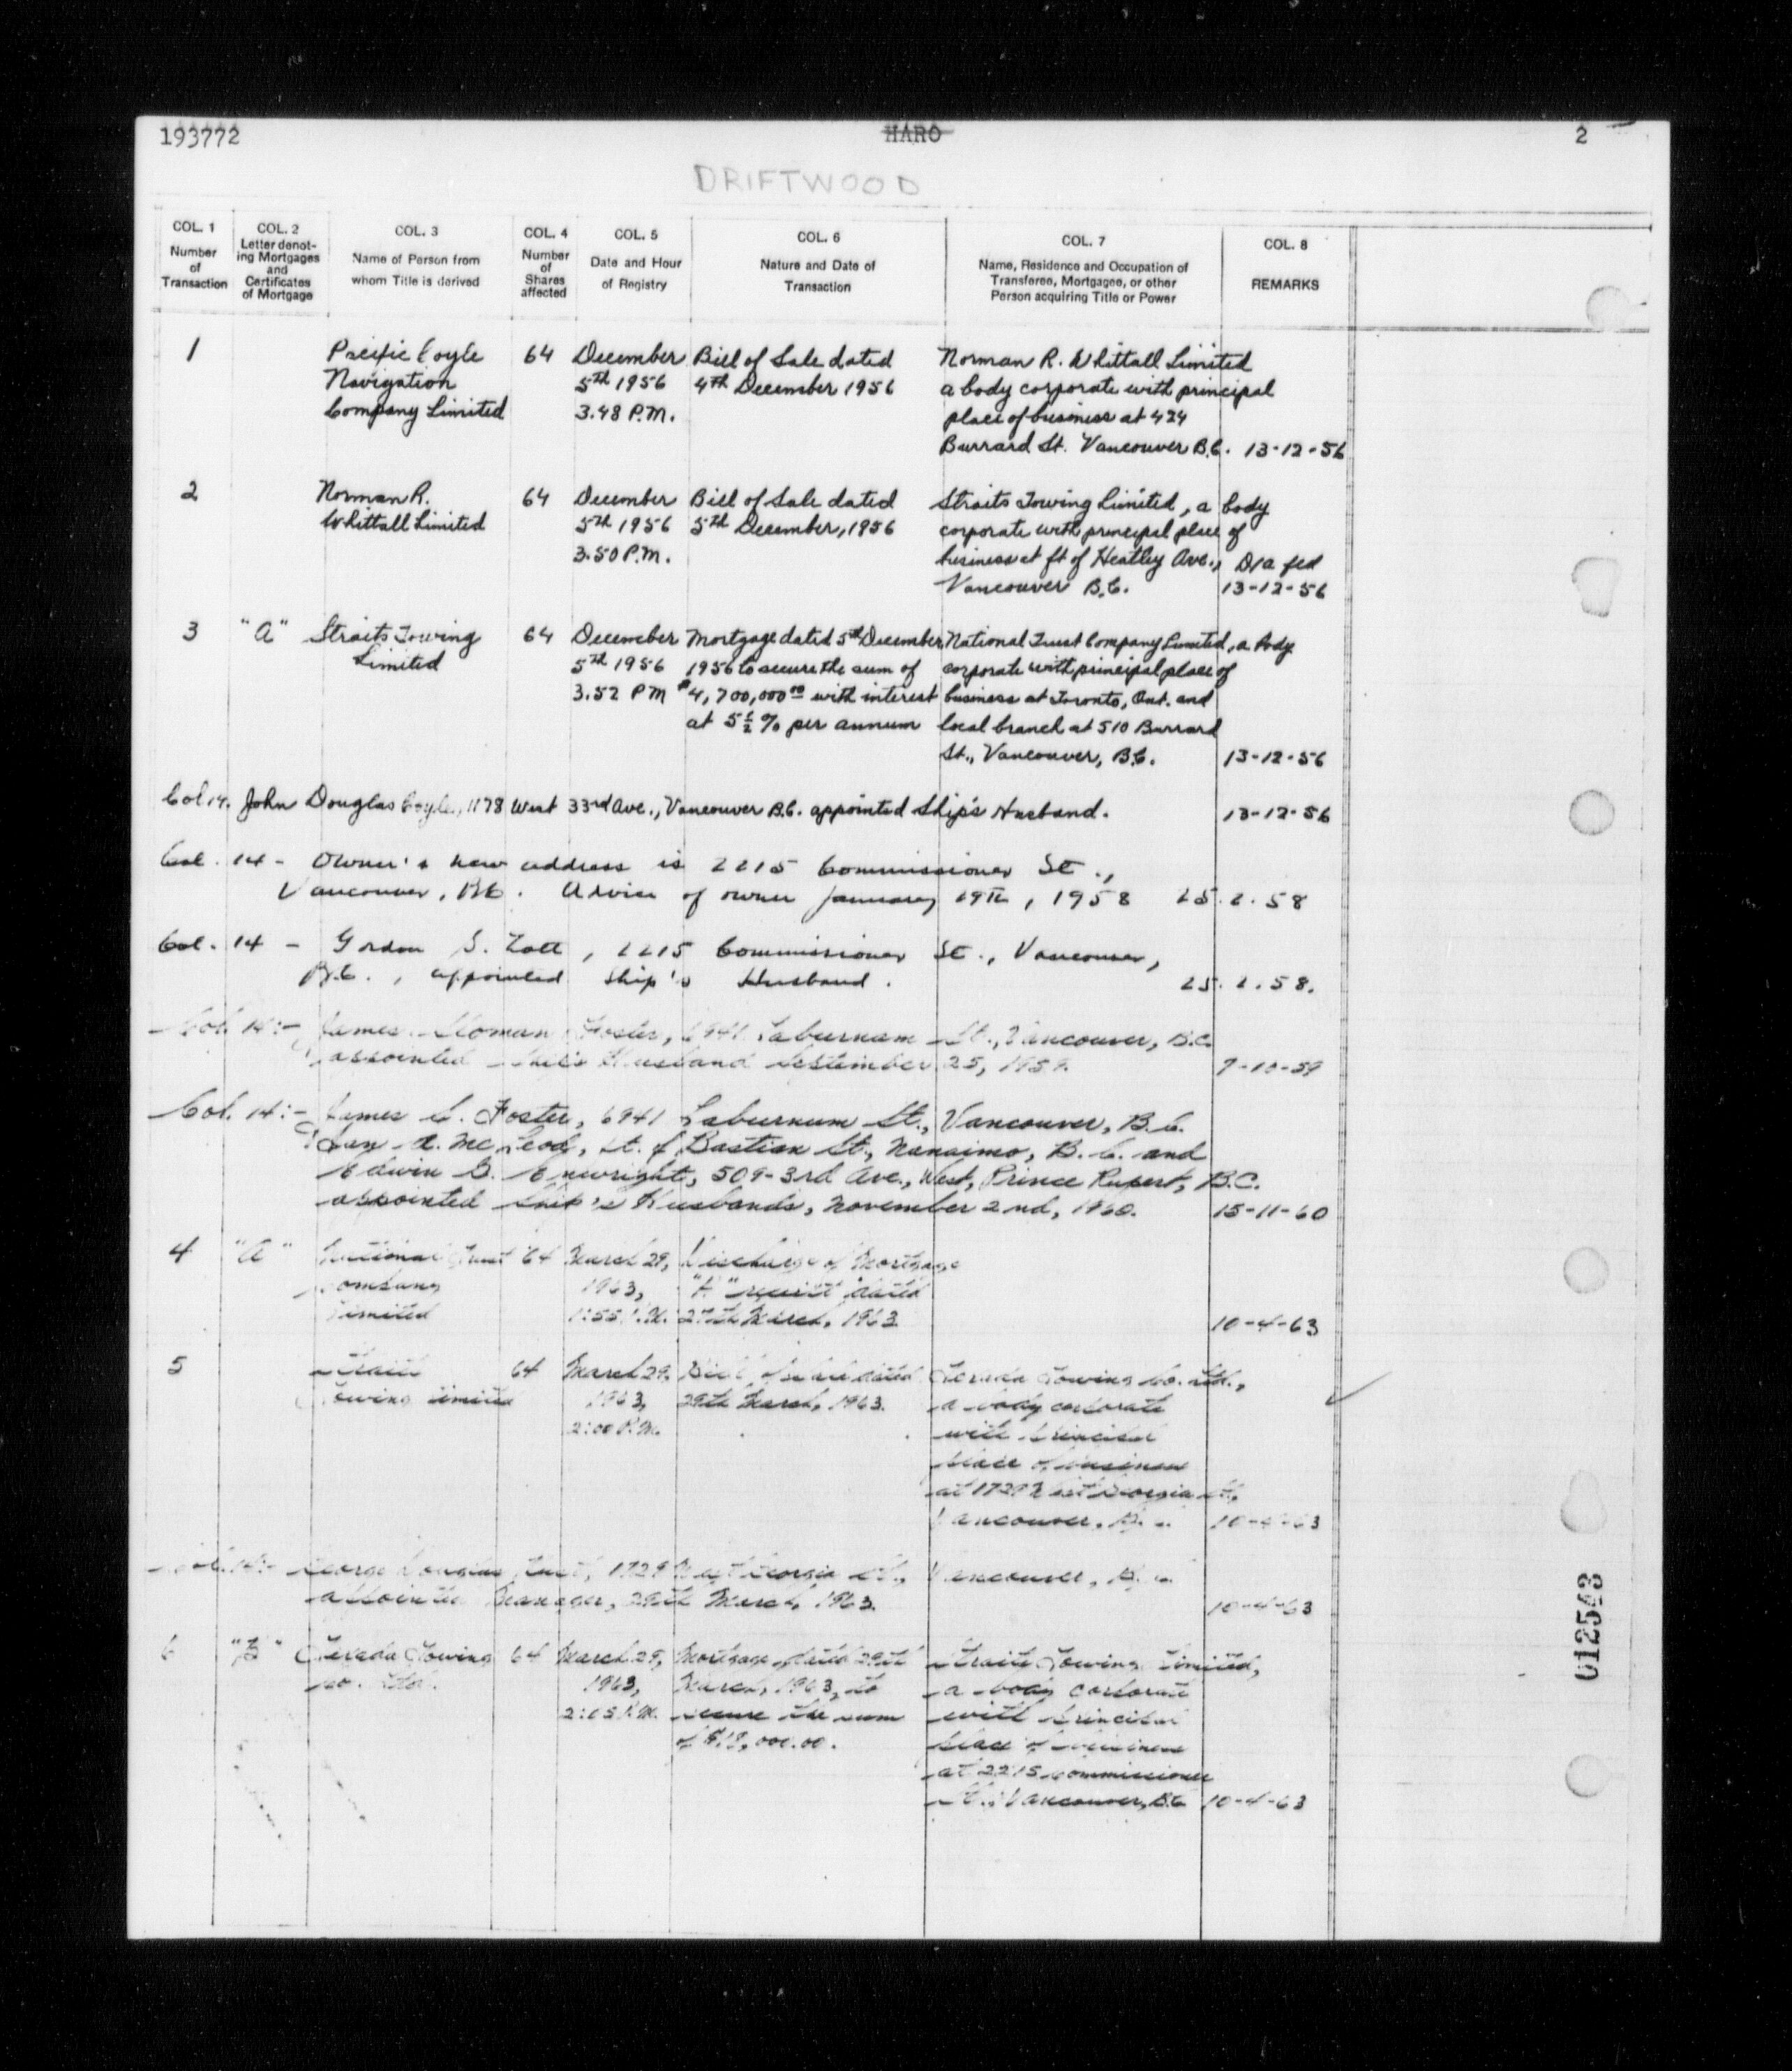 193772 HARO 2
DRIFTWOOD
COL. 1 COL. 2 COL. 3 COL. 4 COL. 5 COL. 6 COL. 7 COL. 8
Number of Transaction
Letter denoting Mortgages and Certificates of Mortgage
Name of Person from whom Title is derived
Number of Shares affected
Date and Hour of Registry
Nature and Date of Transaction
Name, Residence and Occupation of Transferee, Mortgagee, or other Person acquiring Title or Power
REMARKS
1 Pacific Coyle 64 December Bill of Sale dated Norman R. Whittall Limited
Navigation 5th 1956 4th December 1956 a body corporate with principal
Company Limited 3.48 P.M. place of business at 424
Burrard St. Vancouver B.C. 13-12-56
2 Norman R. 64 December Bill of Sale dated Straits Towing Limited, a body
Whittall Limited 5th 1956 5th December, 1956 corporate with principal place of
3.50 P.M. business at ft of Heatley Ave.,
Vancouver B.C. 13-12-56
3 "A" Straits Towing 64 December Mortgage dated 5th December National Trust Company Limited, a body
Limited 5th 1956 1956 to secure the sum of corporate with principal place of
3.52 PM $4,700,000.00 with interest business at Toronto, Ont. and
at 5 1/2 % per annum local branch at 510 Burrard
St., Vancouver, B.C. 13-12-56
Col 14. John Douglas Coyle, 1178 West 33rd Ave., Vancouver B.C. appointed Ship's Husband. 13-12-56
Col. 14 - Owner's new address is 2215 Commissioner St.,
Vancouver, BC. Advice of owner January 29th, 1958 25.2.58
Col. 14 - Gordon S. , 2215 Commissioner St., Vancouver,
B.C., appointed Ship's Husband. 25.2.58.
Col. 14:- James Foster, 6941 Laburnum St., Vancouver, B.C.
appointed Ship's Husband September 25, 1959. 9-10-59
Col. 14:- James C. Foster, 6941 Laburnum St., Vancouver, B.C.
Ian A. McLeod, ft. of Bastion St., Nanaimo, B.C. and
Edwin G. Enwright, 509-3rd Ave., West, Prince Rupert, B.C.
appointed Ship's Husbands, November 2nd, 1960. 15-11-60
4 "A" National Trust 64 March 29, Discharge of Mortgage
Company 1963, "A" receipt dated
Limited 1:55 P.M. 27th March, 1963 10-4-63
5 Straits 64 March 29, Bill of Sale dated Texada Towing Co. Ltd.,
Towing Limited 1963, 29th March, 1963. a body corporate
2:00 P.M. with principal
place of business
at 1729 West Georgia St.,
Vancouver, B.C. 10-4-63
Col. 14:- George Douglas 1729 West Georgia St., Vancouver, B.C.
appointed Manager, 29th March, 1963. 10-4-63
6 "B" Texada Towing 64 March 29, Mortgage dated 29th Straits Towing Limited,
Co. Ltd. 1963, March, 1963, to a body corporate
2:05 P.M. secure the sum with principal
of place of business
at 2215 Commissioner
St., Vancouver, B.C. 10-4-63
012593